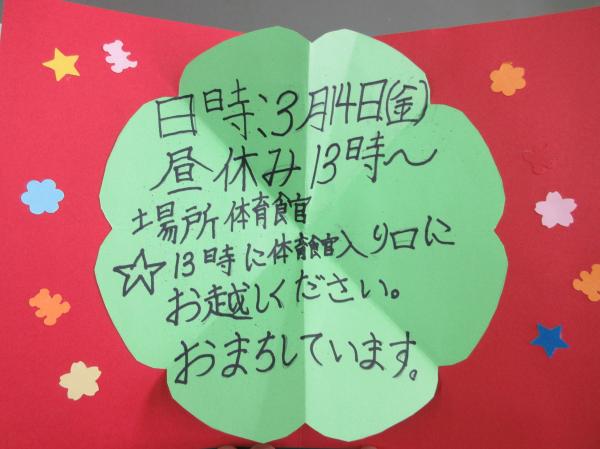 日時、3月14日(金)
昼休み13時〜
場所 体育館
☆13時に体育館入り口に
お越しください。
おまちしています。